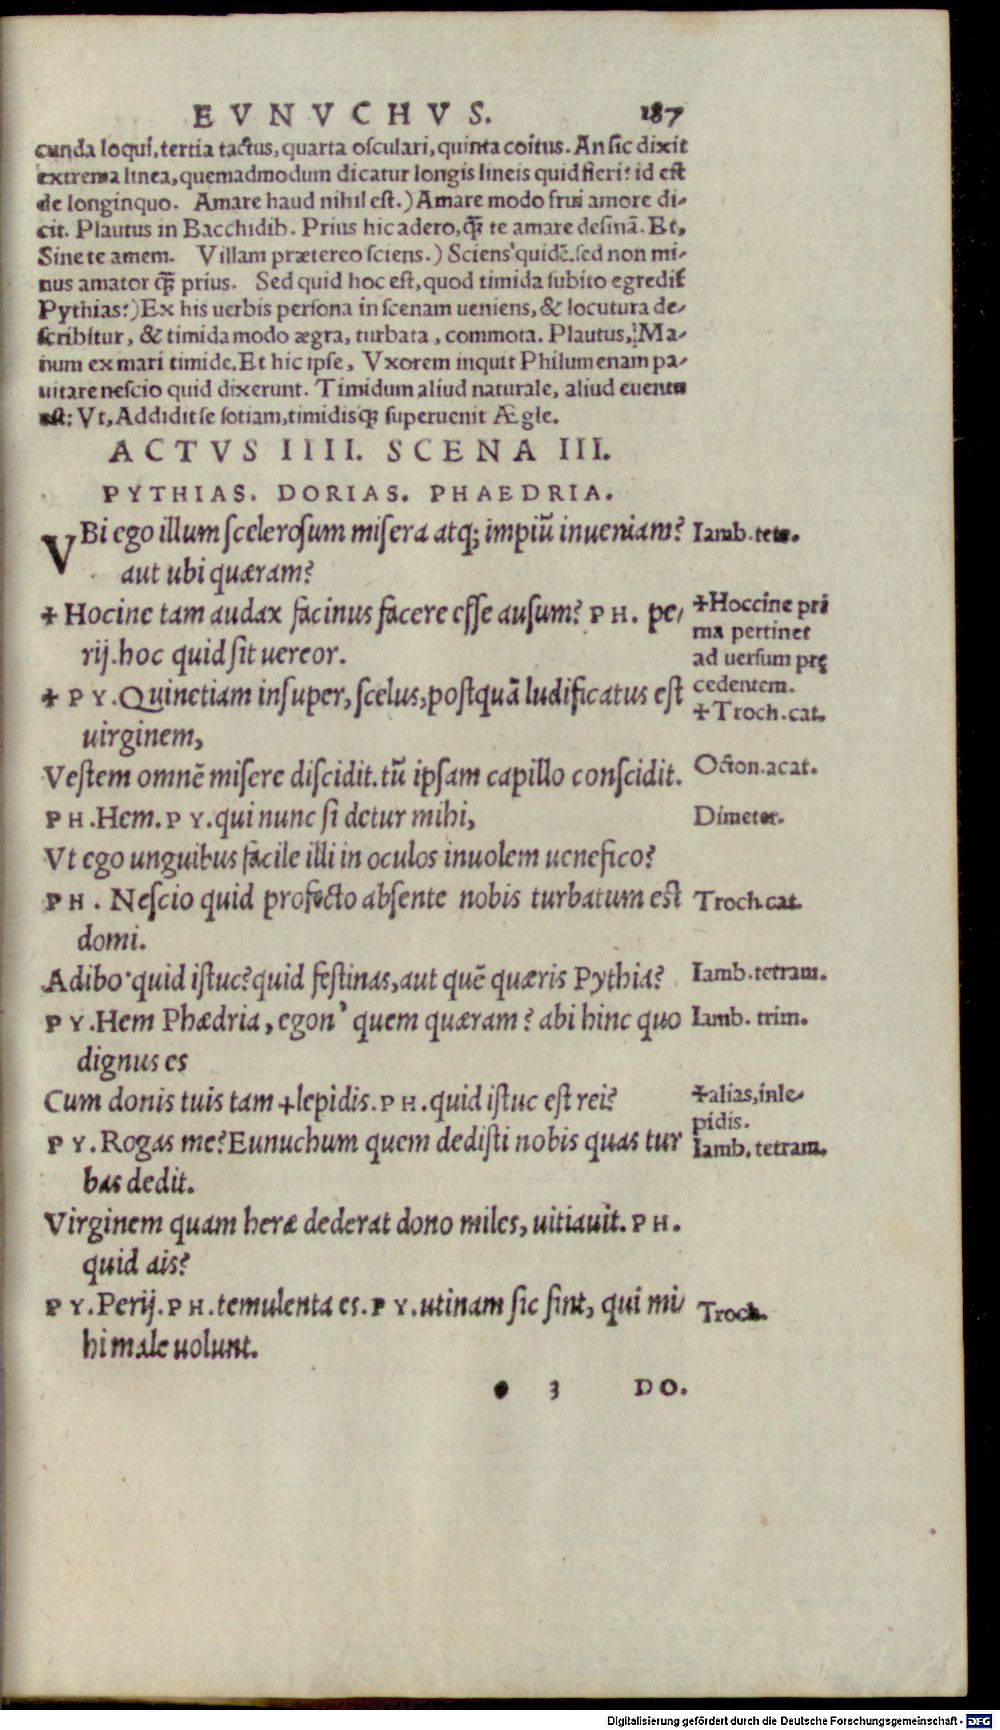 EVNVCHVS. 187
cunda loqui, tertia tactus, quarta osculari, quinta coitus. An sic dixit
extrema linea, quemadmodum dicatur longis lineis quid fieri? id est
de longinquo. Amare haud nihil est.) Amare modo frui amore di-
cit. Plautus in Bacchidib. Prius hic adero, q̃ te amare desinã. Et,
Sine te amem. Villam prætereo sciens.) Sciens quidẽ, sed non mi-
nus amator q̃ prius. Sed quid hoc est, quod timida subito egredit
Pythias?) Ex his uerbis persona in scenam ueniens, & locutura de-
scribitur, & timida modo ægra, turbata, commota. Plautus, Ma-
num ex mari timide. Et hic ipse, Vxorem inquit Philumenam pa-
uitare nescio quid dixerunt. Timidum aliud naturale, aliud euentu
est: Vt, Addidit se sotiam, timidisq; superuenit Ægle.
ACTVS IIII. SCENA III.
PYTHIAS. DORIAS. PHAEDRIA.
VBi ego illum scelerosum misera atq; impiũ inueniam? Iamb. tetr.
aut ubi quæram?
+ Hocine tam audax facinus facere esse ausum? PH. pe- +Hoccine pri
ma pertinet
rij. hoc quid sit uereor. ad uersum prę
+ PY. Quinetiam insuper, scelus, postquã ludificatus est cedentem.
+Troch. cat.
uirginem,
Vestem omnẽ misere discidit. tũ ipsam capillo conscidit. Octon. acat.
PH. Hem. PY. qui nunc si detur mihi, Dimeter.
Vt ego unguibus facile illi in oculos inuolem uenefico?
PH. Nescio quid profecto absente nobis turbatum est Troch. cat.
domi.
Adibo. quid istuc? quid festinas, aut quẽ quæris Pythia? Iamb. tetram.
PY. Hem Phædria, egon' quem quæram? abi hinc quo Iamb. trim.
dignus es
Cum donis tuis tam +lepidis. PH. quid istuc est rei? +alias, inle-
pidis.
PY. Rogas me? Eunuchum quem dedisti nobis quas tur Iamb. tetram.
bas dedit.
Virginem quam heræ dederat dono miles, uitiauit. PH.
quid ais?
PY. Perij. PH. temulenta es. PY. utinam sic sint, qui mi- Troch.
hi male uolunt.
3 DO.
Digitalisierung gefördert durch die Deutsche Forschungsgemeinschaft - DFG